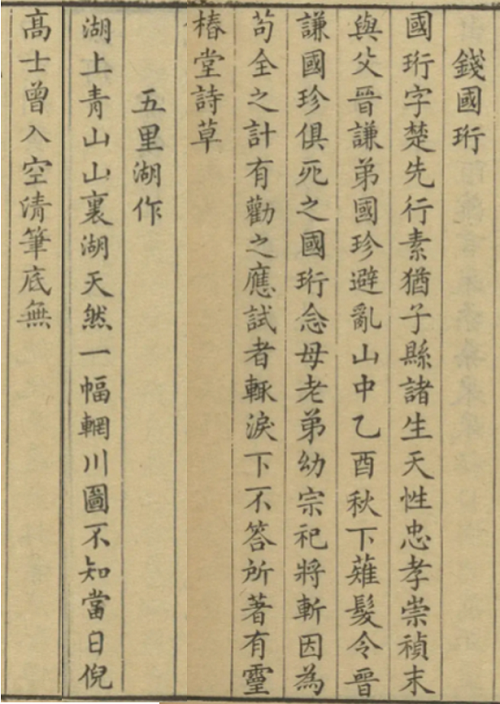 錢國珩
國珩字楚先行素猶子縣諸生天性忠孝崇禎末
與父晉謙弟國珍避亂山中乙酉秋下薙髮令晉
謙國珍俱死之國珩念母老弟幼宗祀將斬因為
茍全之計有勸之應試者輒淚下不答所著有靈
椿堂詩草
五里湖作
湖上青山山裏湖天然一幅輞川圖不知當日倪
高士曾入空清筆底無